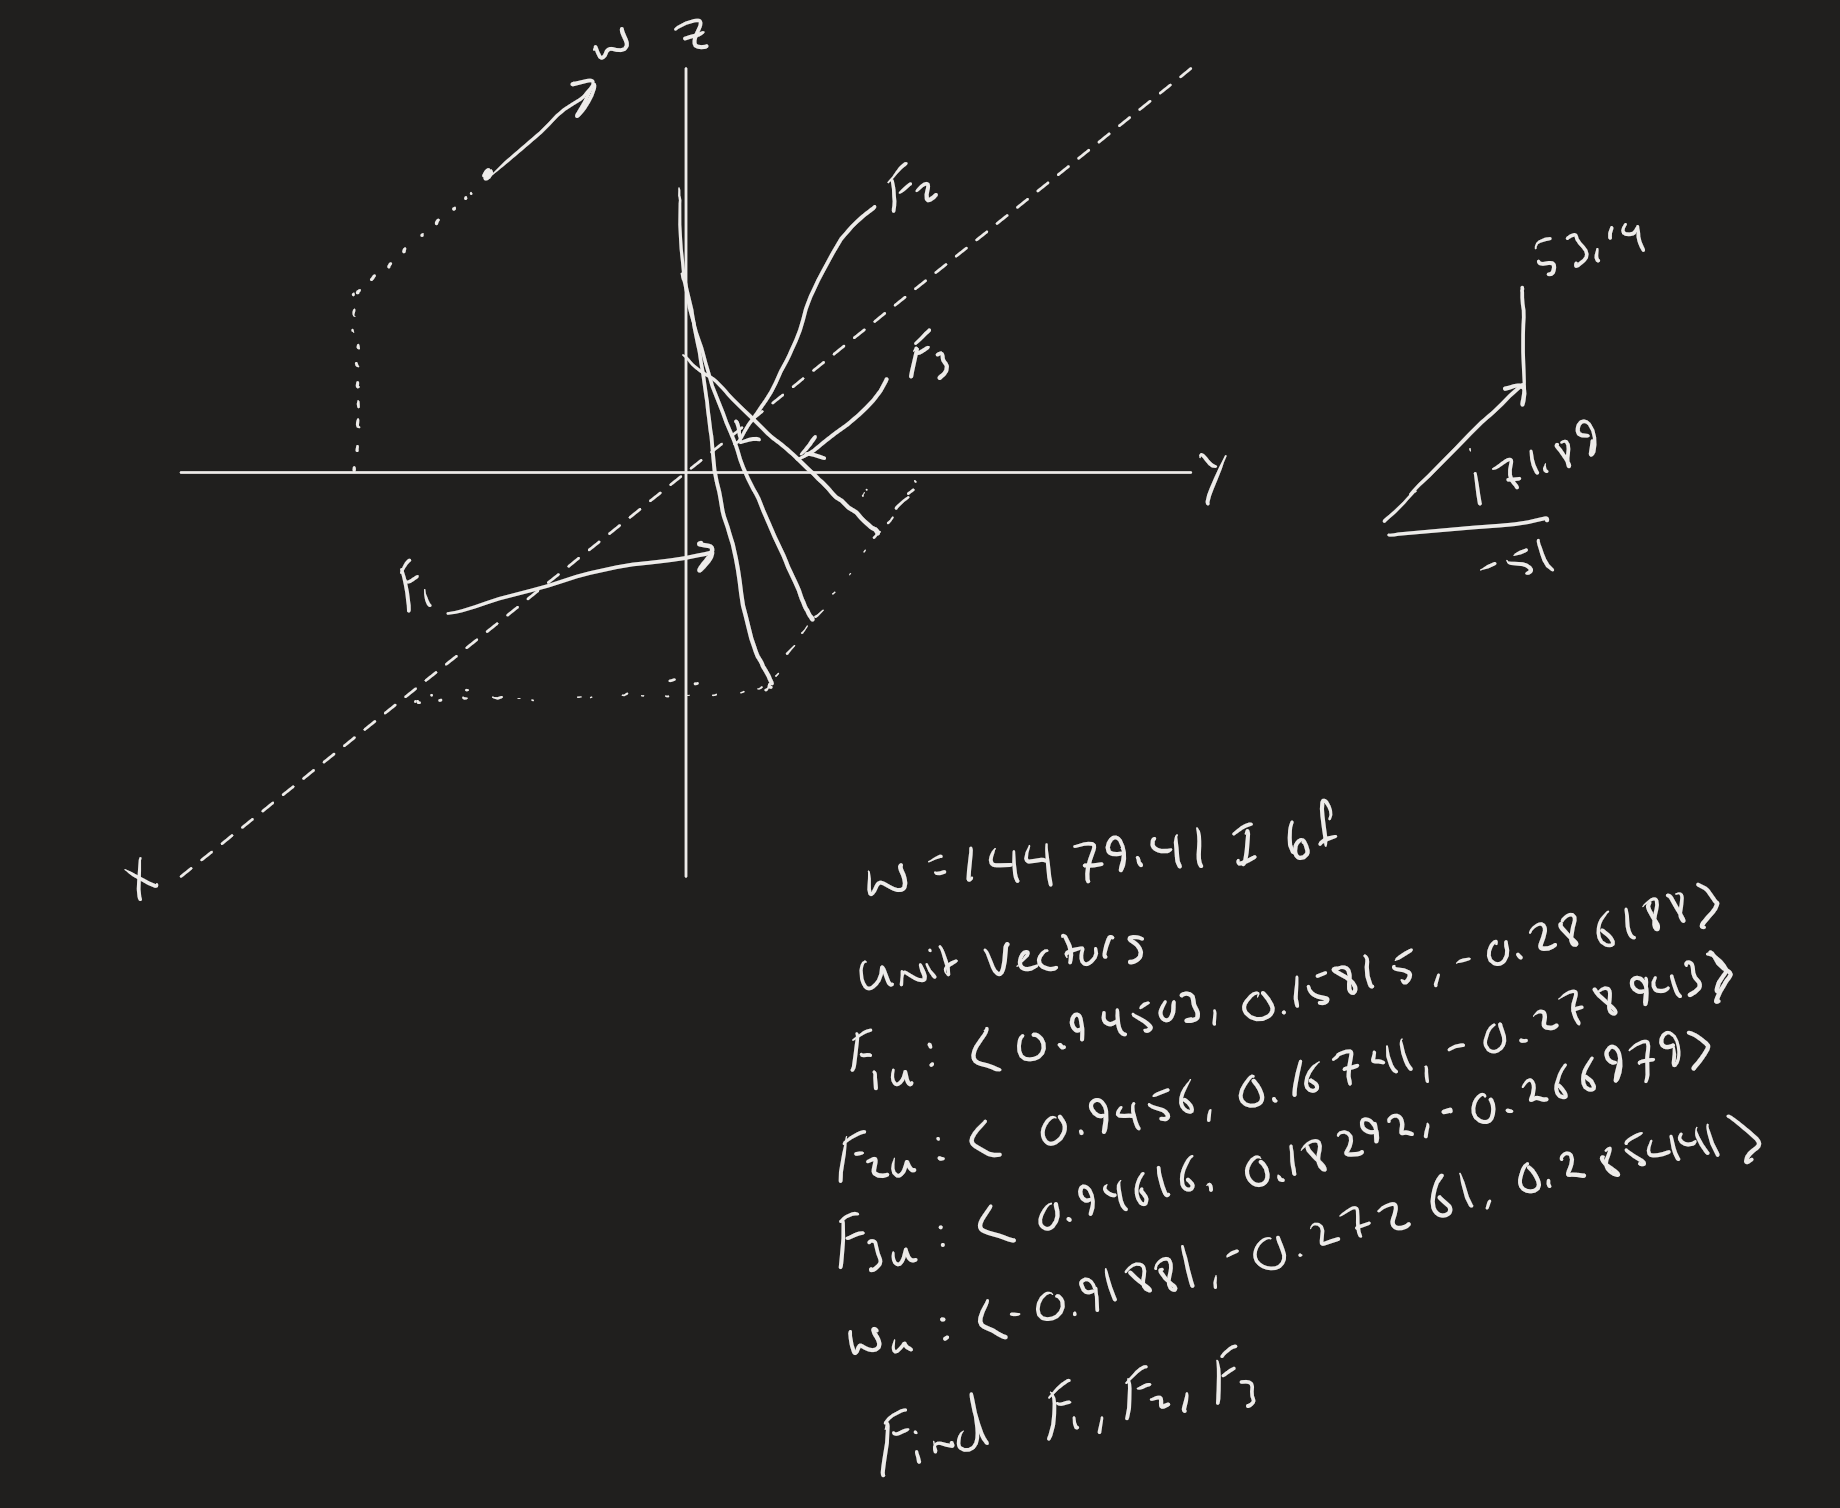 w z
F2
53.14
F3
y
171.89
-51
F1
x
w = 14479.41 Ibf
unit vectors
F1u: <0.94503, 0.15815, -0.286188>
F2u: < 0.9456, 0.16741, -0.278943>
F3u: < 0.94616, 0.18292, -0.266979>
wu: <-0.91881, -0.27261, 0.285441>
Find F1, F2, F3